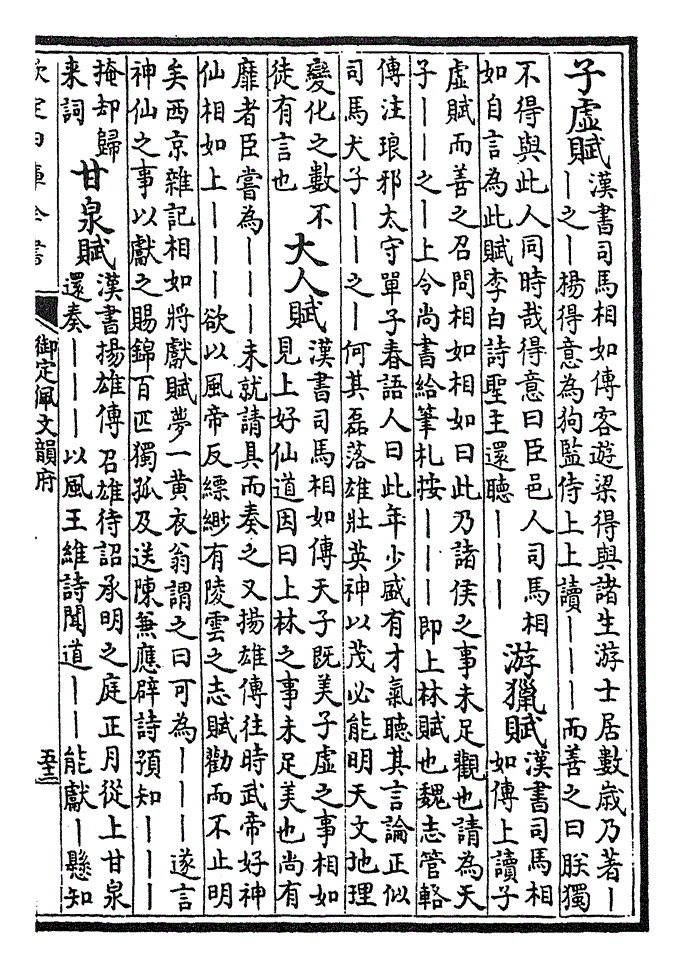 子虛賦漢書司馬相如傳客遊梁得與諸生游士居數歲乃著丨
丨之丨楊得意為狗監侍上上讀丨丨丨而善之曰朕獨
不得與此人同時哉得意曰臣邑人司馬相
如自言為此賦李白詩聖主還聽丨丨丨
游獵賦漢書司馬相
如傳上讀子
虛賦而善之召問相如相如曰此乃諸侯之事未足觀也請為天
子丨丨之丨上令尚書給筆札按丨丨丨即上林賦也魏志管輅
傳注琅邪太守單子春語人曰此年少盛有才氣聽其言論正似
司馬犬子丨丨之丨何其磊落雄壯英神以茂必能明天文地理
變化之數不
徒有言也
大人賦漢書司馬相如傳天子既美子虛之事相如
見上好仙道因曰上林之事未足美也尚有
靡者臣嘗為丨丨丨未就請具而奏之又揚雄傳往時武帝好神
仙相如上丨丨丨欲以風帝反縹緲有陵雲之志賦勸而不止明
矣西京雜記相如將獻賦夢一黄衣翁謂之曰可為丨丨丨遂言
神仙之事以獻之賜錦百匹獨孤及送陳兼應辟詩預知丨丨丨
掩却歸
来詞
甘泉賦漢書揚雄傳召雄待詔承明之庭正月從上甘泉
還奏丨丨丨以風王維詩聞道丨丨能獻丨懸知
欽定四庫全書
御定佩文韻府